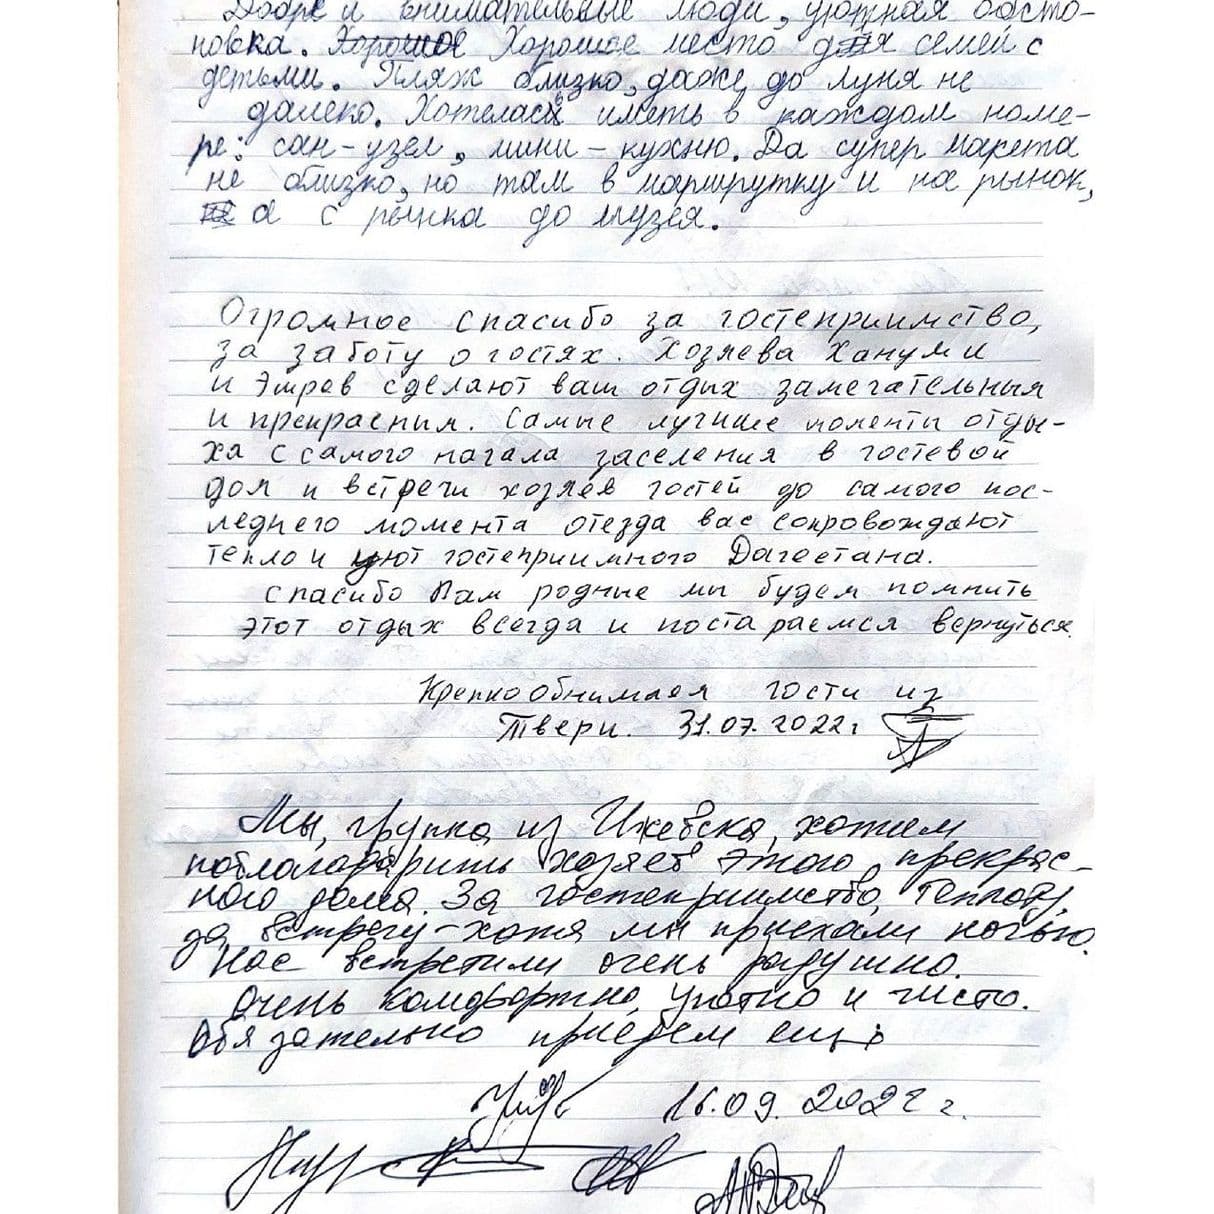 Добре и внимательные люди, уютная обста-
новка. Хорошое Хорошое место для семей с
детьми. Пляж близко, даже до луня не
далеко. Хотелась иметь в каждом номе-
ре: сан-узел, мини-кухню. Да супер макета
не близко, но там в маршрутку и на рынок,
а с рынка до музея.
Огромное спасибо за гостеприимство,
за заботу о гостях. Хозяева Ханум и
и Эшреф сделают ваш отдых замечательныя
и прекрасным. Самые лучшие моменты отды-
ха с самого начала заселения в гостевой
дом и встречи хозяев гостей до самого пос-
леднего момента отезда вас сопровождают
тепло и уют гостеприимного Дагестана.
спасибо Вам родные мы будем помнить
этот отдых всегда и постараемся вернуться.
Крепко обнимаея гости из
Твери. 31.07.2022г
Мы, группа из Ижевска, хотим
поблагодарить хозяев этого прекрас-
ного дома. За гостеприимство, теплоту,
за встречу - хотя мы приехали ночью.
Нас встретили очень радушно.
Очень комфортно, уютно и чисто.
Обязательно приедем ещё
16.09.2022 г.